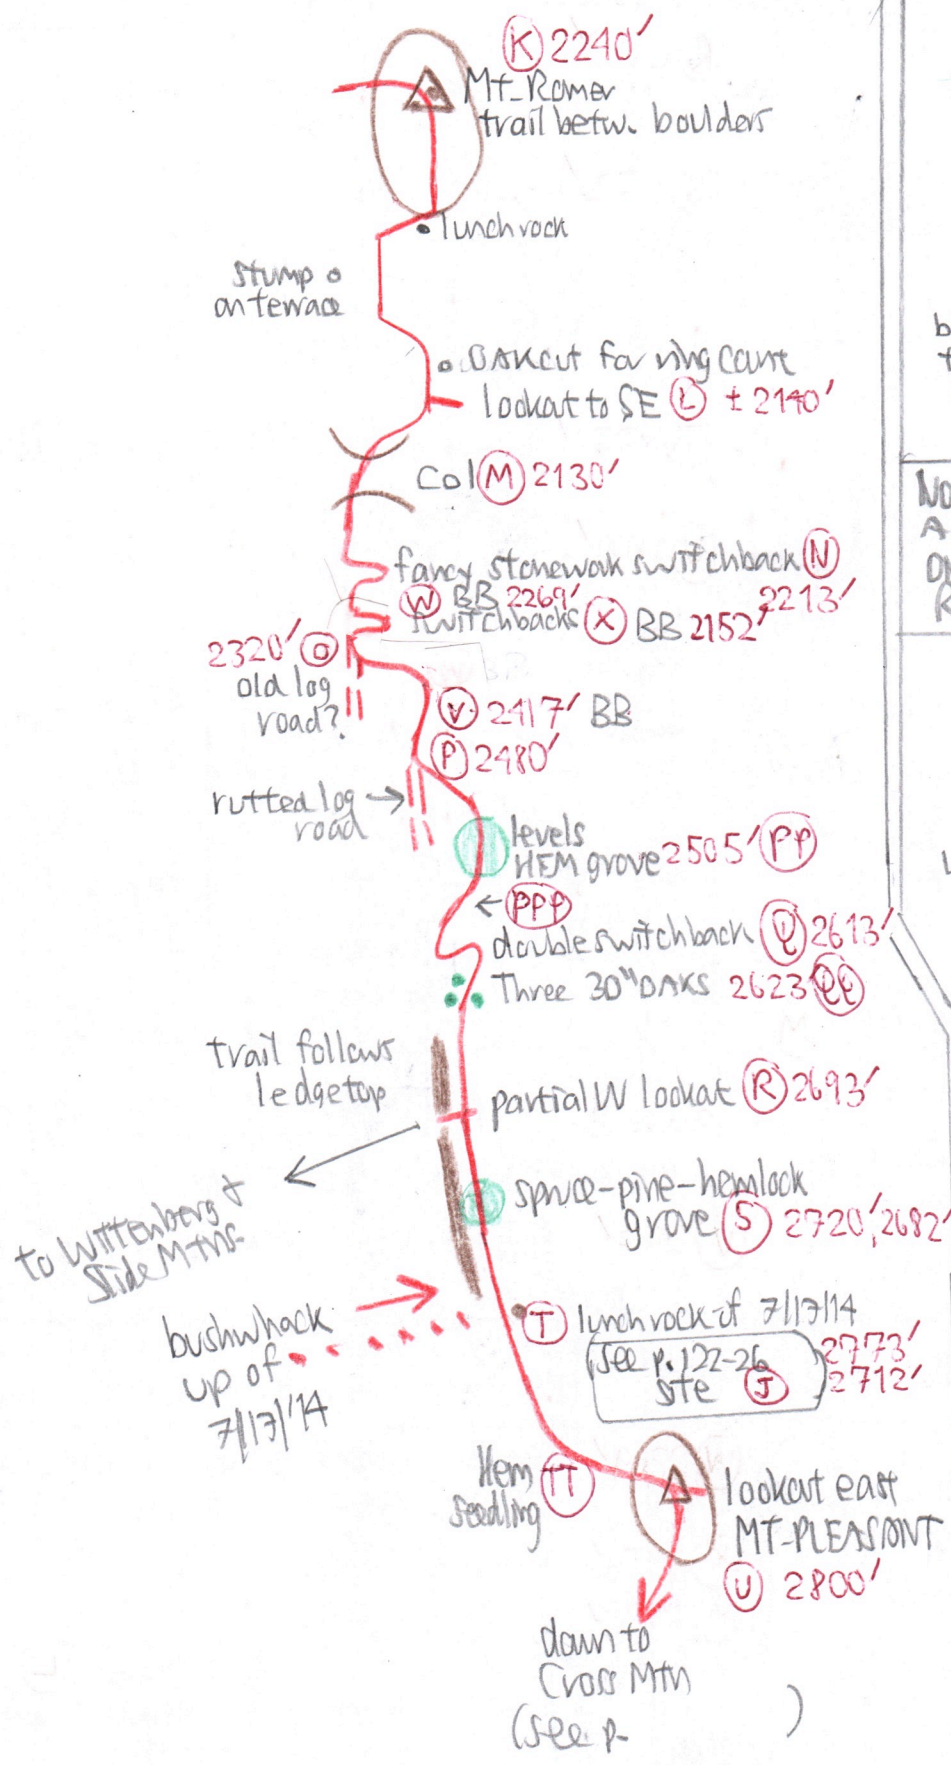 K 2240′
Mt. Romer
trail betw. boulders
lunch rock
stump
on terrace
OAK cut for ring count
lookout to SE L ± 2140′
Col M 2130′
fancy stonework switchback N
2213′
W BB 2269′
switchbacks X BB 2152′
2320′ O
old log
road?
V 2417′ BB
P 2480′
rutted log →
road
levels
HEM grove 2505′ PP
← PPP
double switchback Q 2613′
Three 30" OAKS 2623 QQ
trail follows
ledgetop
partial W lookout R 2693′
to Wittenberg &
Slide Mtns.
spruce-pine-hemlock
grove S 2720′, 2682′
bushwhack
up of
7/17/'14
T lunch rock of 7/17/14
2773′
(see p. 122-26
site J
2712′
Hem
seedling
TT
lookout east
MT. PLEASANT
U 2800′
down to
Cross Mtn
(see p. )
b
t
NO
A
R